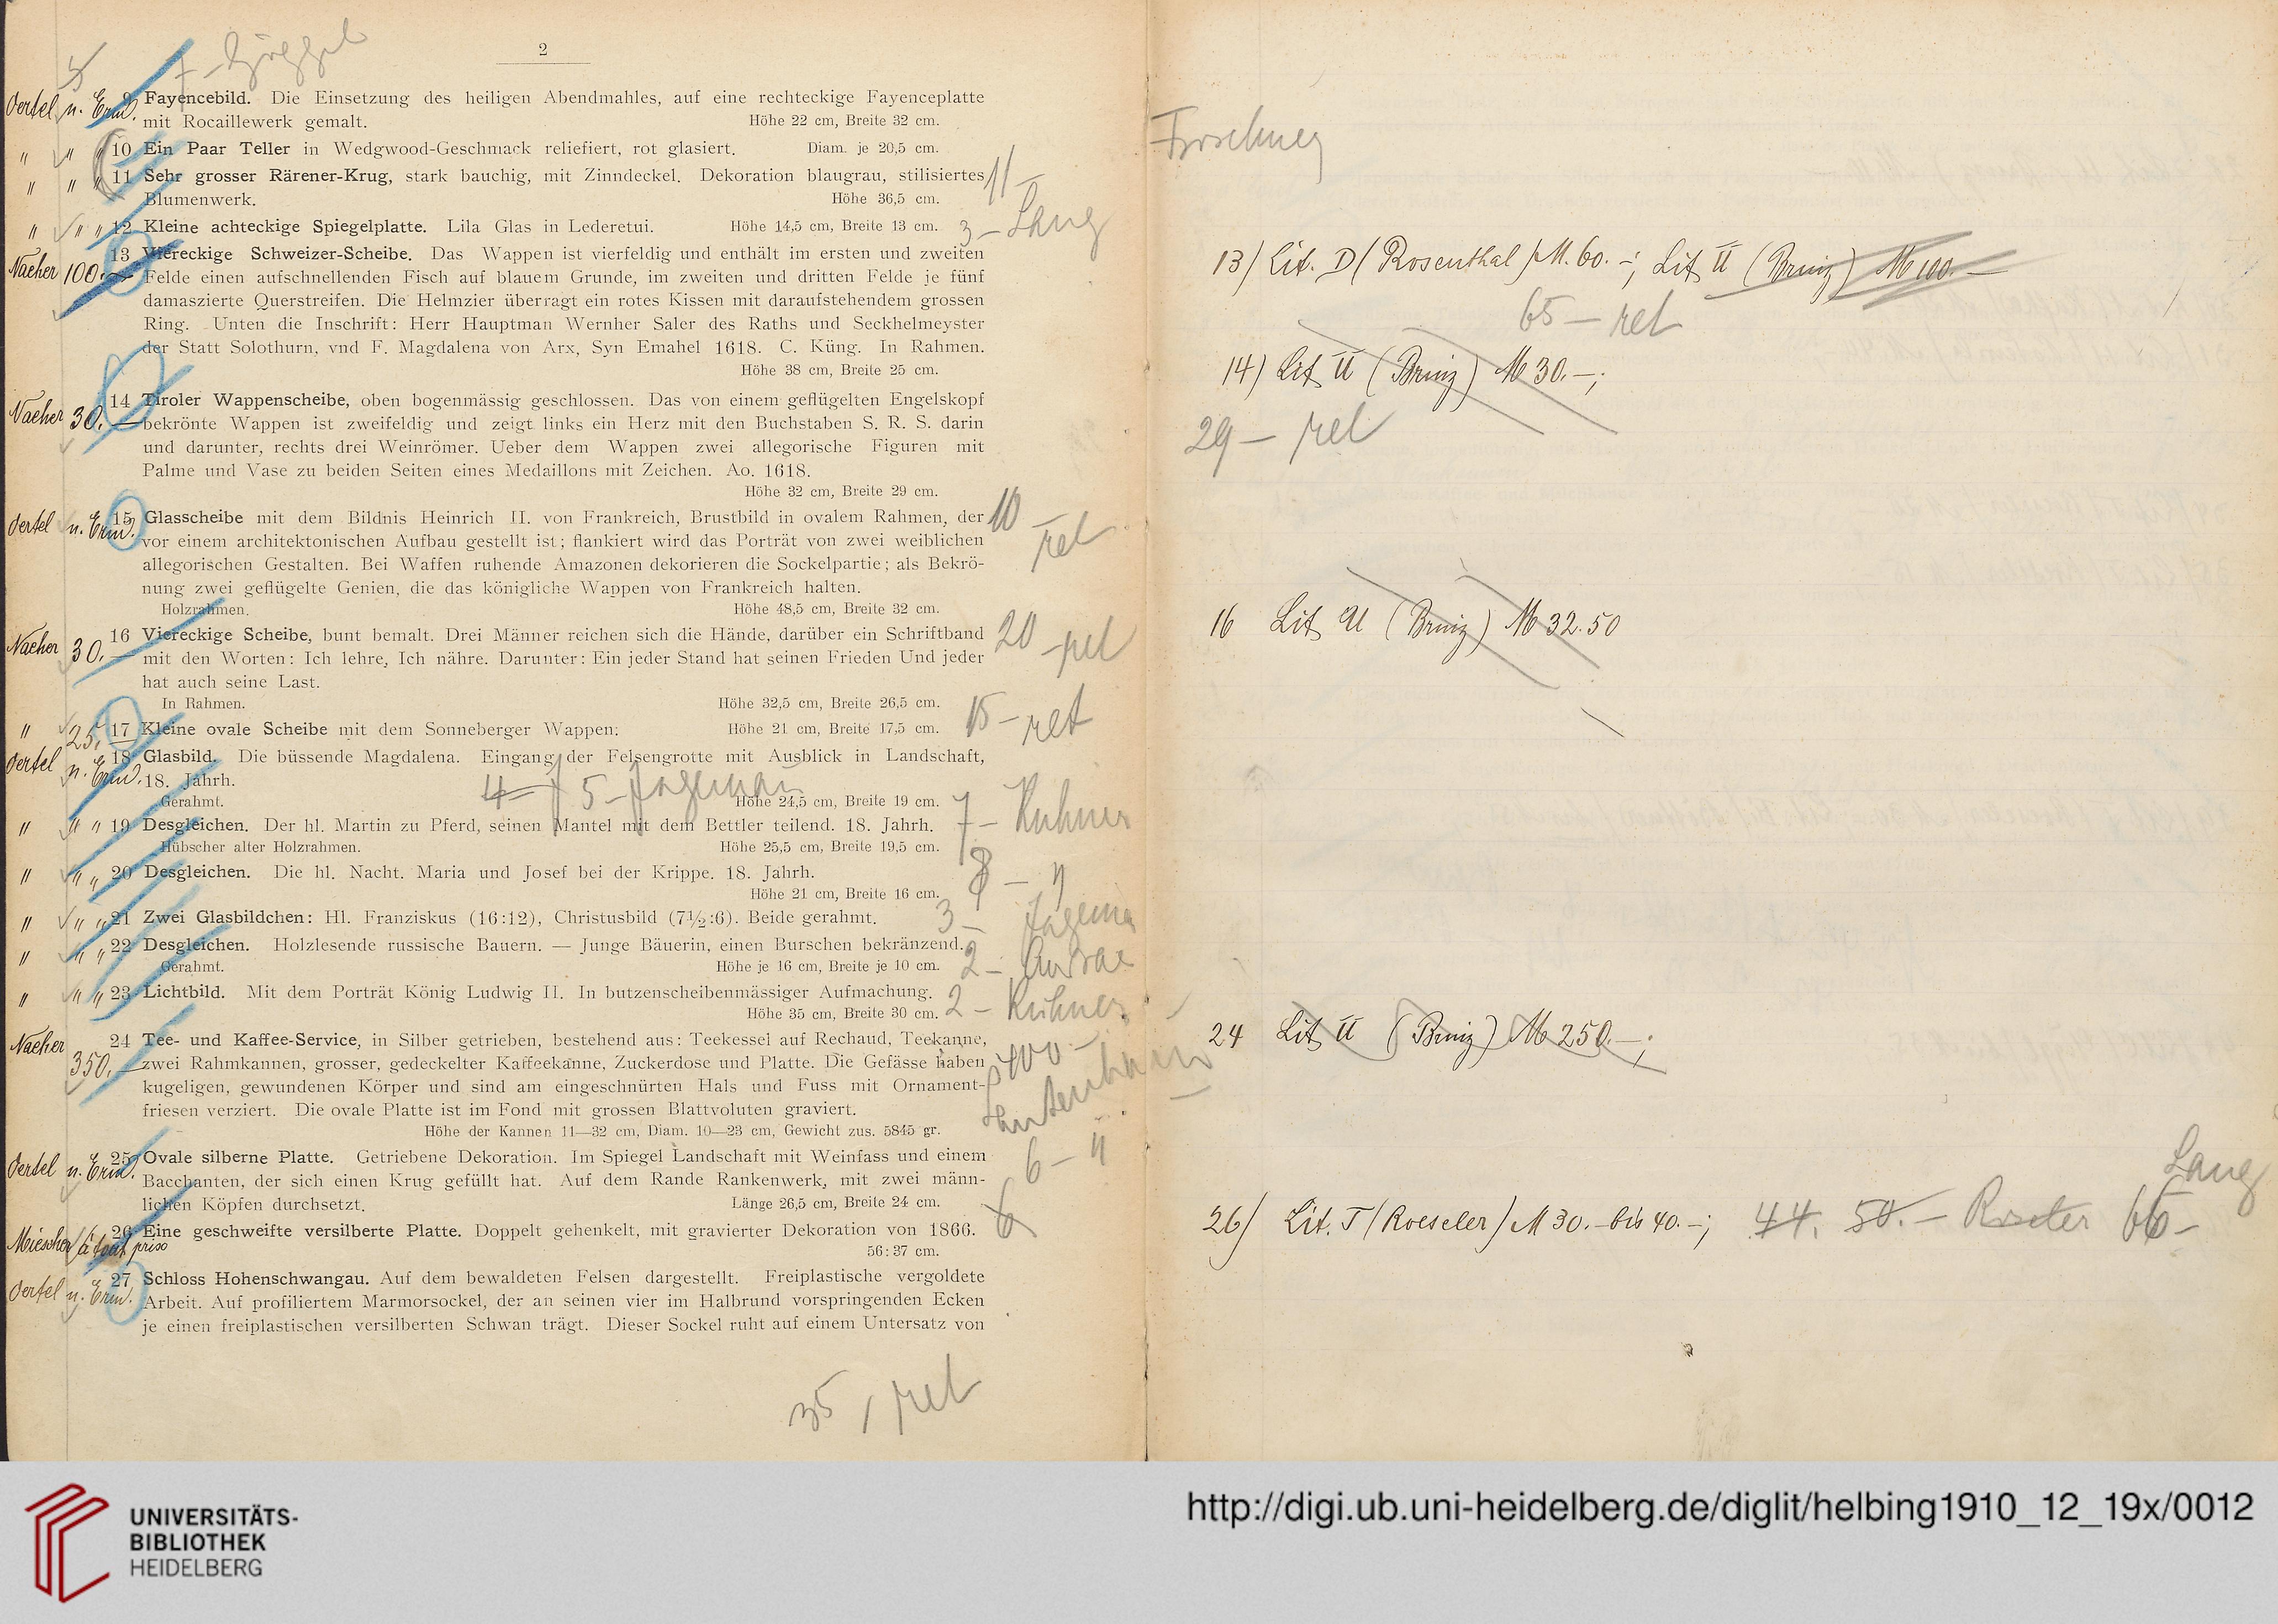 2
7 –
Oertel u. Ernd. 9 Fayencebild. Die Einsetzung des heiligen Abendmahles, auf eine rechteckige Fayenceplatte
mit Rocaillewerk gemalt. Höhe 22 cm, Breite 32 cm.
" " " 10 Ein Paar Teller in Wedgwood-Geschmack reliefiert, rot glasiert. Diam. je 20,5 cm.
" " " 11 Sehr grosser Rärener-Krug, stark bauchig, mit Zinndeckel. Dekoration blaugrau, stilisiertes 11 –
Blumenwerk. Höhe 36,5 cm.
" " " 12 Kleine achteckige Spiegelplatte. Lila Glas in Lederetui. Höhe 14,5 cm, Breite 13 cm. 3 – Lang
Nacher 100.– 13 Viereckige Schweizer-Scheibe. Das Wappen ist vierfeldig und enthält im ersten und zweiten
Felde einen aufschnellenden Fisch auf blauem Grunde, im zweiten und dritten Felde je fünf
damaszierte Querstreifen. Die Helmzier überragt ein rotes Kissen mit daraufstehendem grossen
Ring. Unten die Inschrift: Herr Hauptman Wernher Saler des Raths und Seckhelmeyster
der Statt Solothurn, vnd F. Magdalena von Arx, Syn Emahel 1618. C. Küng. In Rahmen.
Höhe 38 cm, Breite 25 cm.
Nacher 30.– 14 Tiroler Wappenscheibe, oben bogenmässig geschlossen. Das von einem geflügelten Engelskopf
bekrönte Wappen ist zweifeldig und zeigt links ein Herz mit den Buchstaben S. R. S. darin
und darunter, rechts drei Weinrömer. Ueber dem Wappen zwei allegorische Figuren mit
Palme und Vase zu beiden Seiten eines Medaillons mit Zeichen. Ao. 1618.
Höhe 32 cm, Breite 29 cm.
Oertel u. Ernd. 15 Glasscheibe mit dem Bildnis Heinrich II. von Frankreich, Brustbild in ovalem Rahmen, der 10 – ret
vor einem architektonischen Aufbau gestellt ist; flankiert wird das Porträt von zwei weiblichen
allegorischen Gestalten. Bei Waffen ruhende Amazonen dekorieren die Sockelpartie; als Bekrö-
nung zwei geflügelte Genien, die das königliche Wappen von Frankreich halten.
Holzrahmen. Höhe 48,5 cm, Breite 32 cm.
Nacher 30.– 16 Viereckige Scheibe, bunt bemalt. Drei Männer reichen sich die Hände, darüber ein Schriftband 20 – ret
mit den Worten: Ich lehre, Ich nähre. Darunter: Ein jeder Stand hat seinen Frieden Und jeder
hat auch seine Last.
In Rahmen. Höhe 32,5 cm, Breite 26,5 cm.
" 25.– 17 Kleine ovale Scheibe mit dem Sonneberger Wappen: Höhe 21 cm, Breite 17,5 cm. 15 – ret
Oertel u. Ernd. 18 Glasbild. Die büssende Magdalena. Eingang der Felsengrotte mit Ausblick in Landschaft,
18. Jahrh. 4 – 5 –
Gerahmt. Höhe 24,5 cm, Breite 19 cm.
" " " 19 Desgleichen. Der hl. Martin zu Pferd, seinen Mantel mit dem Bettler teilend. 18. Jahrh. 7 –
Hübscher alter Holzrahmen. Höhe 25,5 cm, Breite 19,5 cm.
" " " 20 Desgleichen. Die hl. Nacht. Maria und Josef bei der Krippe. 18. Jahrh.
Höhe 21 cm, Breite 16 cm. 8 – "
" " " 21 Zwei Glasbildchen: Hl. Franziskus (16:12), Christusbild (7½:6). Beide gerahmt. 3 –
" " " 22 Desgleichen. Holzlesende russische Bauern. — Junge Bäuerin, einen Burschen bekränzend.
Gerahmt. Höhe je 16 cm, Breite je 10 cm. 2 –
" " " 23 Lichtbild. Mit dem Porträt König Ludwig II. In butzenscheibenmässiger Aufmachung.
Höhe 35 cm, Breite 30 cm. 2 –
Nacher 350.– 24 Tee- und Kaffee-Service, in Silber getrieben, bestehend aus: Teekessel auf Rechaud, Teekanne,
zwei Rahmkannen, grosser, gedeckelter Kaffeekanne, Zuckerdose und Platte. Die Gefässe haben 400 –
kugeligen, gewundenen Körper und sind am eingeschnürten Hals und Fuss mit Ornament-
friesen verziert. Die ovale Platte ist im Fond mit grossen Blattvoluten graviert.
Höhe der Kannen 11—32 cm, Diam. 10—23 cm, Gewicht zus. 5845 gr.
Oertel u. Ernd. 25 Ovale silberne Platte. Getriebene Dekoration. Im Spiegel Landschaft mit Weinfass und einem 6 – "
Bacchanten, der sich einen Krug gefüllt hat. Auf dem Rande Rankenwerk, mit zwei männ-
lichen Köpfen durchsetzt. Länge 26,5 cm, Breite 24 cm.
Miescher / à tout prix 26 Eine geschweifte versilberte Platte. Doppelt gehenkelt, mit gravierter Dekoration von 1866.
56:37 cm.
Oertel u. Ernd. 27 Schloss Hohenschwangau. Auf dem bewaldeten Felsen dargestellt. Freiplastische vergoldete
Arbeit. Auf profiliertem Marmorsockel, der an seinen vier im Halbrund vorspringenden Ecken
je einen freiplastischen versilberten Schwan trägt. Dieser Sockel ruht auf einem Untersatz von
35, ret
13/ Lit. D (Rosenthal) M. 60.–; Lit. U (Bruiz) M 100.–
65 – ret
14) Lit. U (Bruiz) M 30.–;
29 – ret
16 Lit. U (Bruiz) M 32.50
24 Lit. U (Bruiz) M 250.–;
Lang
26/ Lit. T (Roeseler) M 30.– bis 40.–; 44. 50.– 66 –
UNIVERSITÄTS-
BIBLIOTHEK
HEIDELBERG
http://digi.ub.uni-heidelberg.de/diglit/helbing1910_12_19x/0012